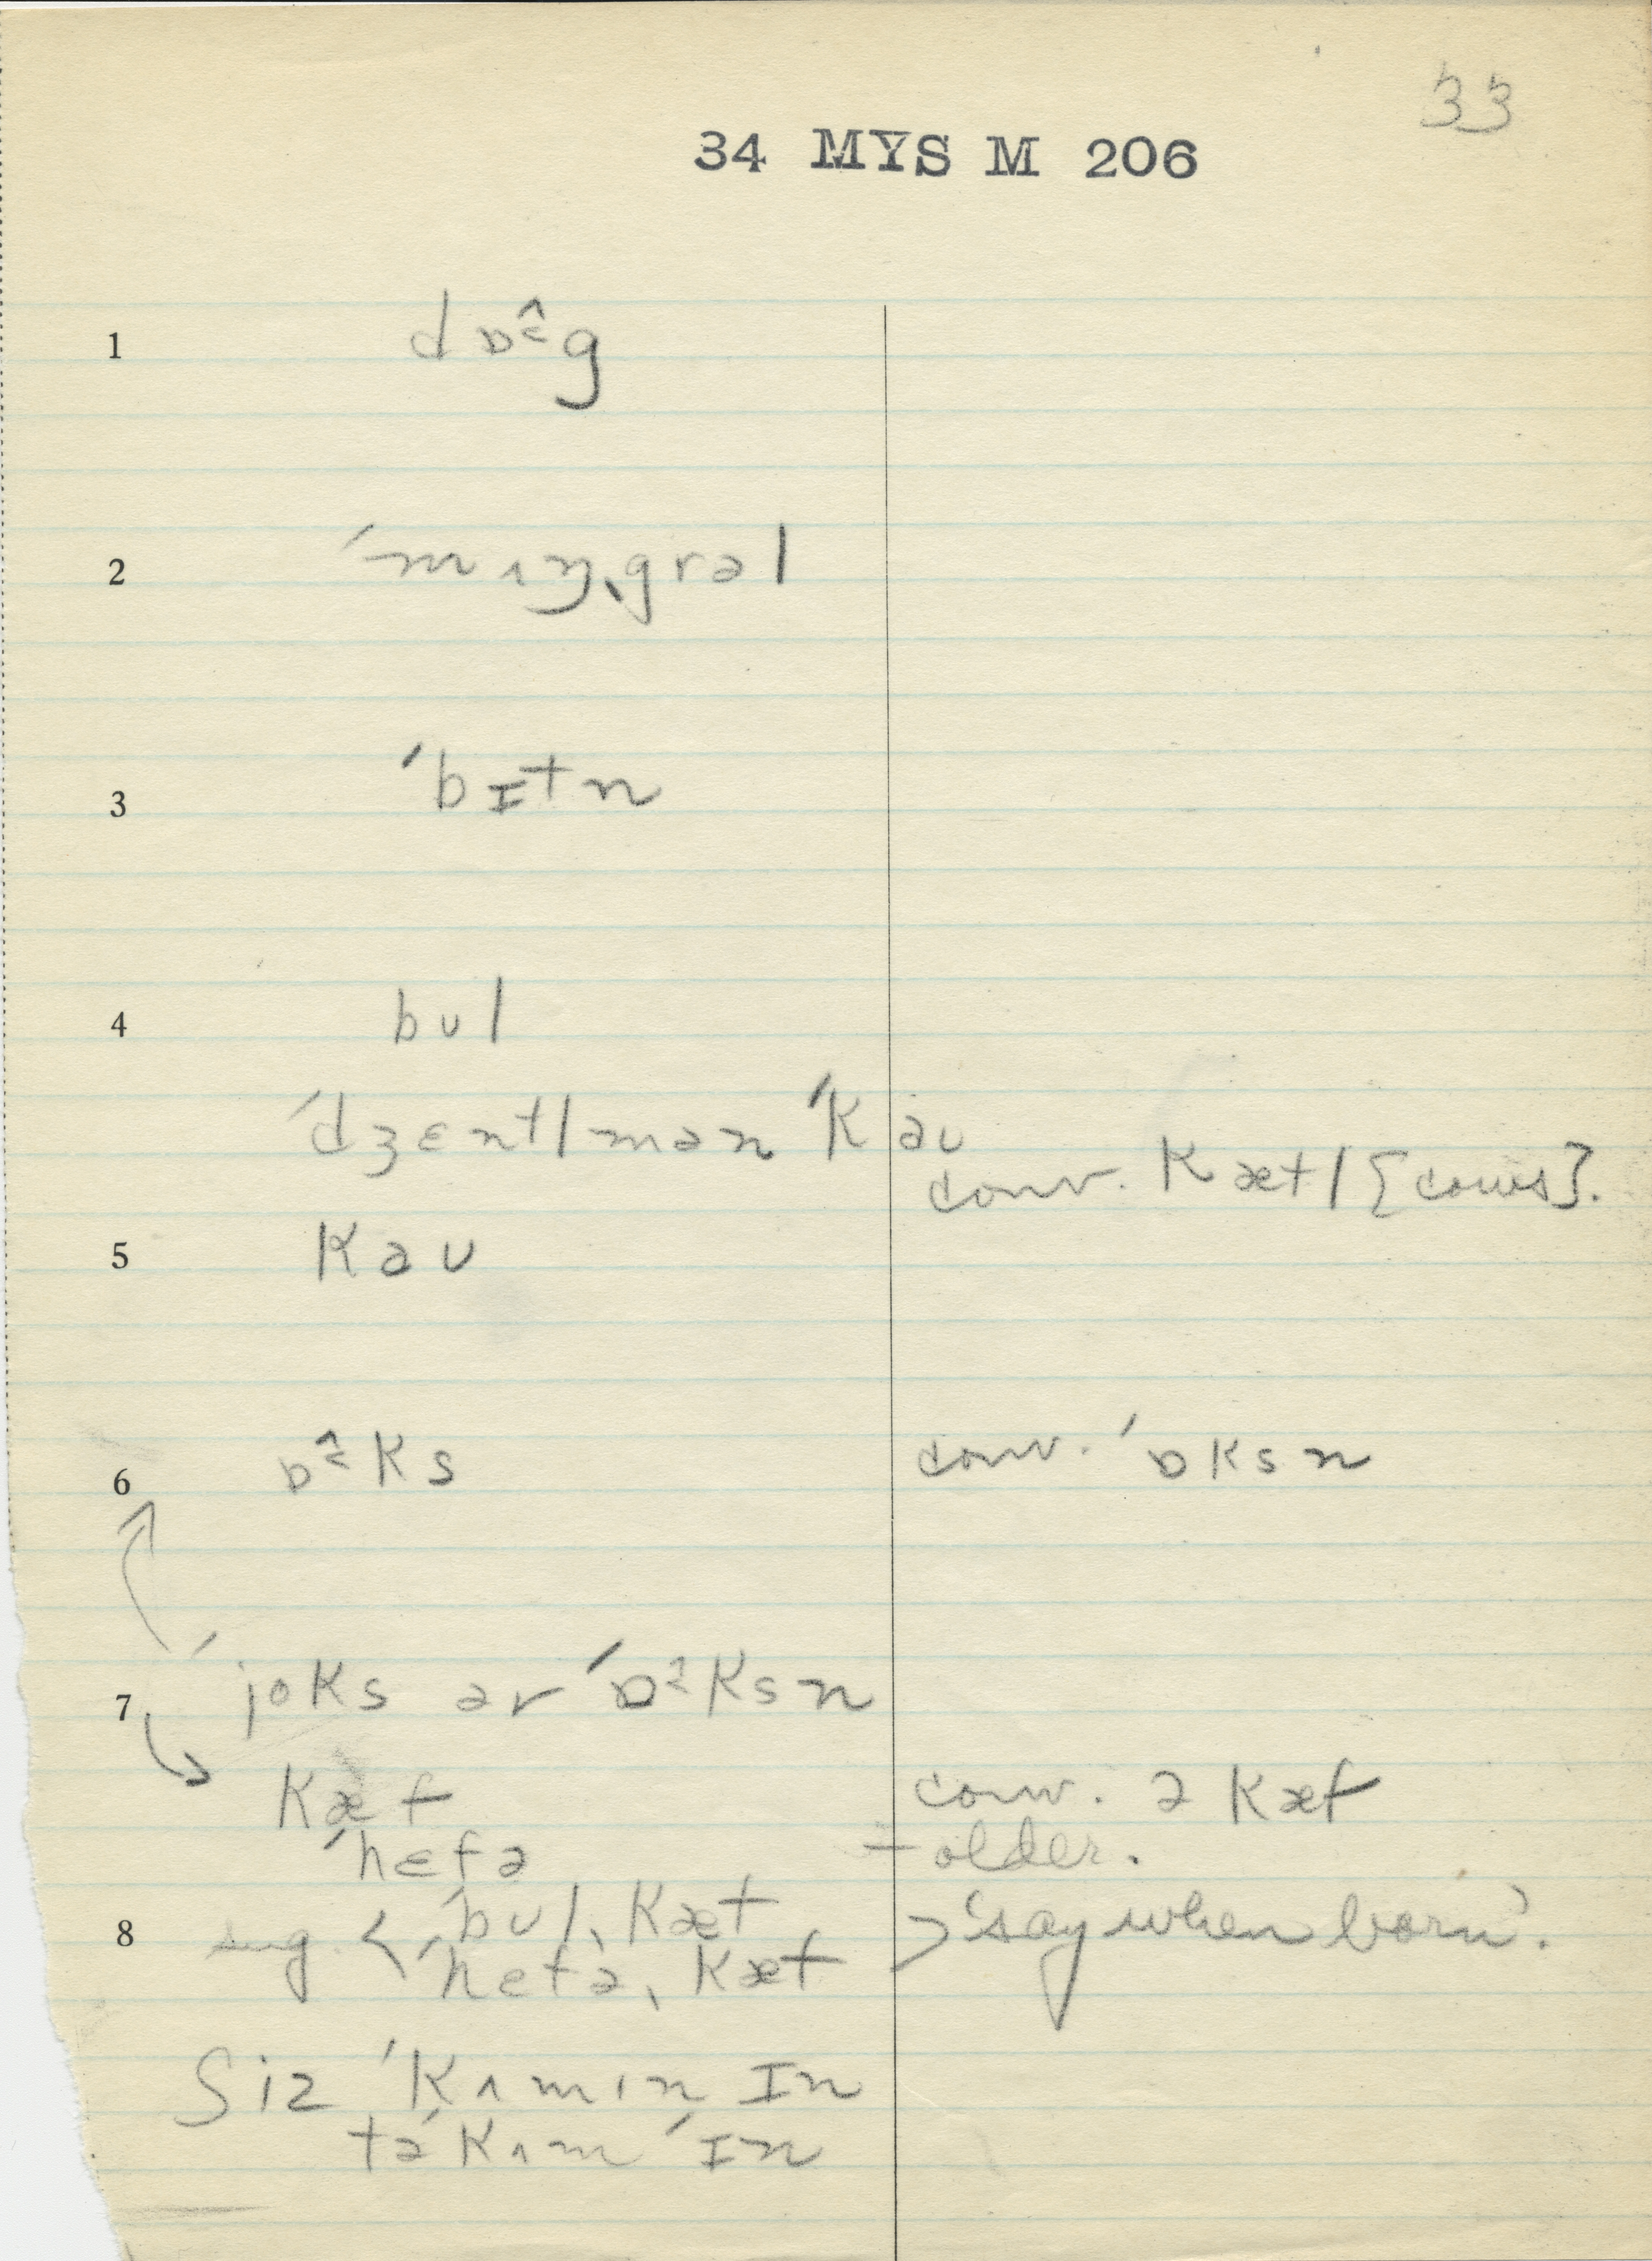 33
34 MYS M 206
1 dɒ˂̂g
2 ˈmʌŋˌgrəl
3 ˈbɪtn
4 bʊl
ˈdʒɛntlmən ˈkəʊ
conv. kætl {cows}.
5 kəʊ
6 ɒ˂̂ks conv. ˈɒksn
7 ˈjoks ər ˈɒ˂̂ksn
kæf conv. ə kæf
ˈhɛfə – older.
8 sug. < ˈbʊlˌkæf
ˈhɛfəˌkæf > ‘say when born’.
ʃiz ˈkʌmɪn ɪn
tə ˈkʌm ˈɪn